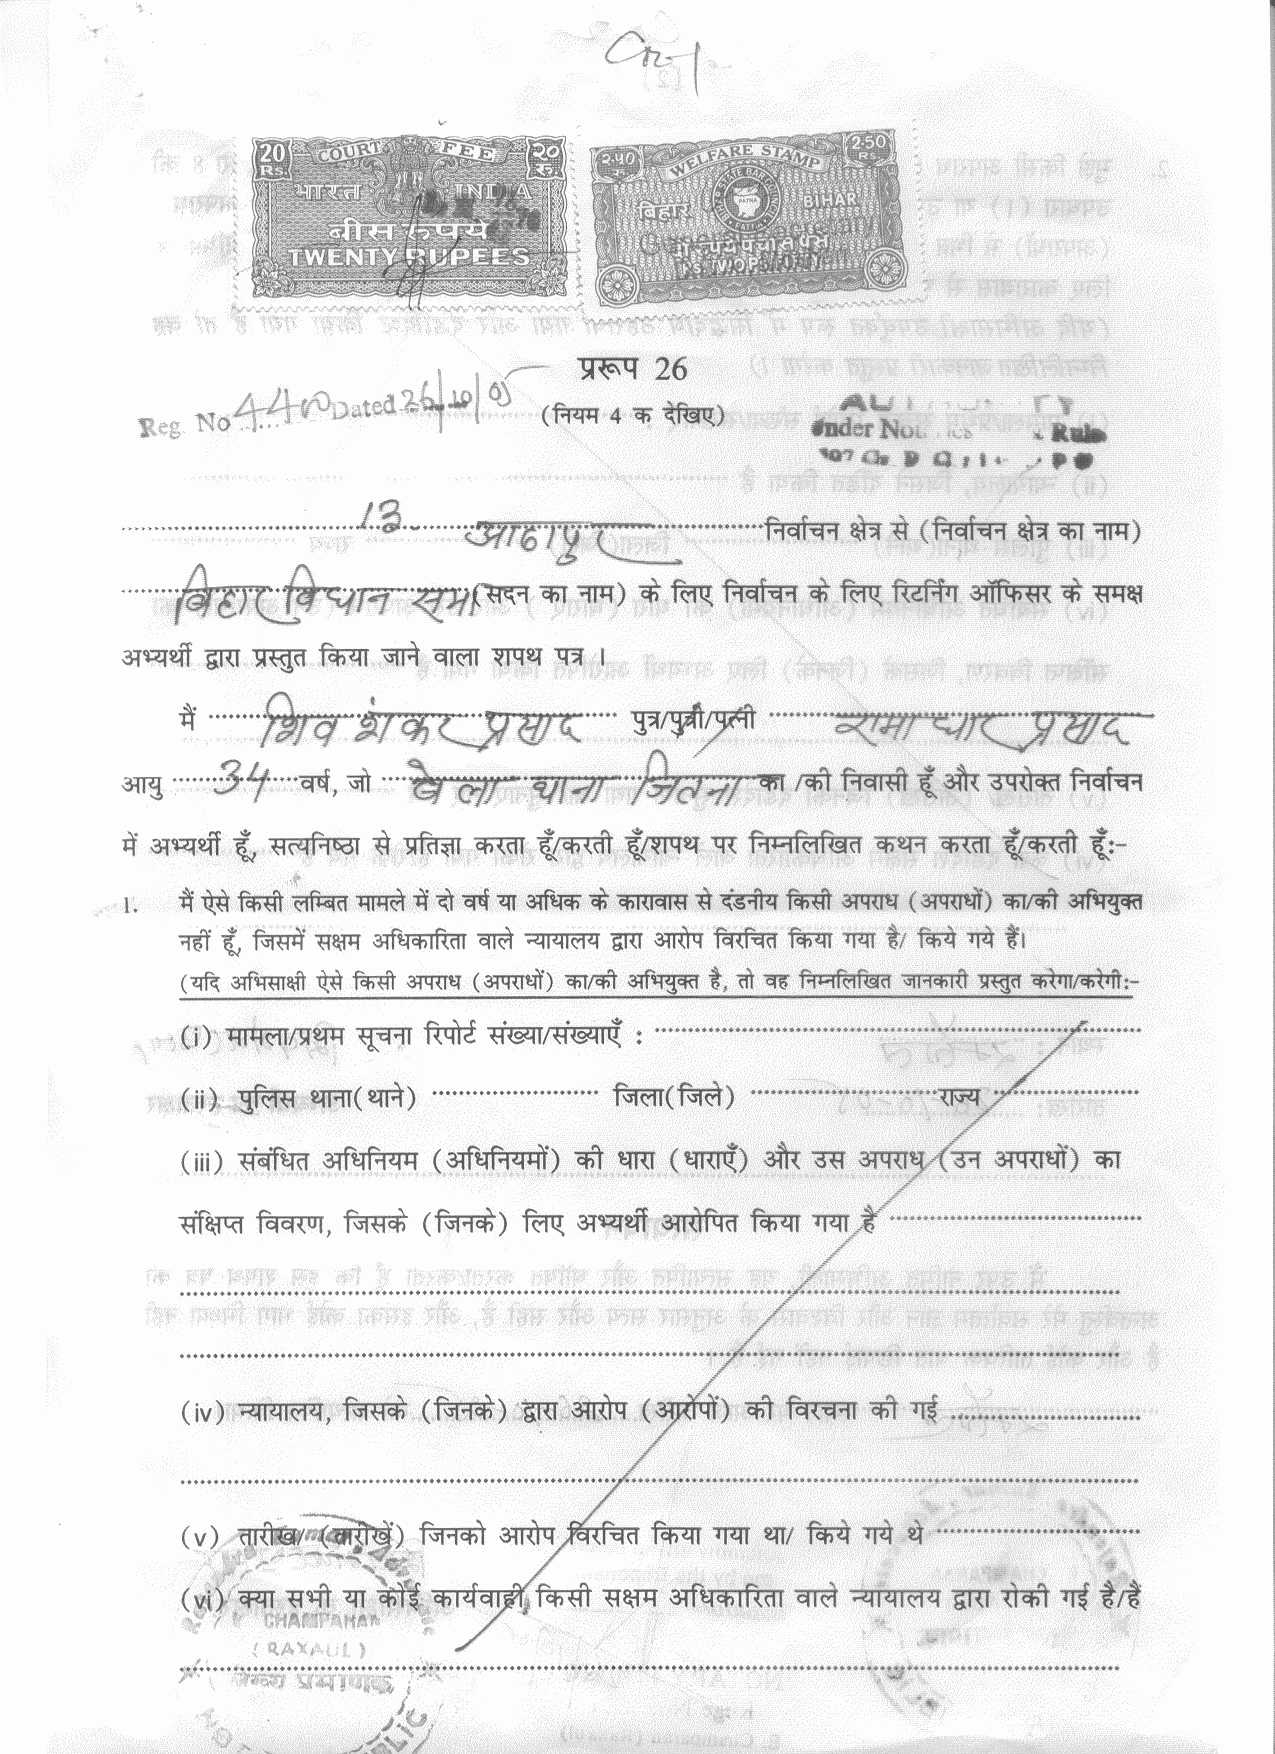 20 Rs. COURT FEE २० रु.
भारत INDIA
बीस रूपये
TWENTY RUPEES
2.50 रु. WELFARE STAMP 2.50 RS.
बिहार BIHAR
प्ररूप 26
Reg. No 440 Dated 26/10/05 (नियम 4 क देखिए)
13. आदापुर निर्वाचन क्षेत्र से (निर्वाचन क्षेत्र का नाम)
बिहार विधान सभा (सदन का नाम) के लिए निर्वाचन के लिए रिटर्निंग ऑफिसर के समक्ष
अभ्यर्थी द्वारा प्रस्तुत किया जाने वाला शपथ पत्र ।
मैं शिव शंकर प्रसाद पुत्र/पुत्री/पत्नी रामा धार प्रसाद
आयु 34 वर्ष, जो बेला थाना जितना का /की निवासी हूँ और उपरोक्त निर्वाचन
में अभ्यर्थी हूँ, सत्यनिष्ठा से प्रतिज्ञा करता हूँ/करती हूँ/शपथ पर निम्नलिखित कथन करता हूँ/करती हूँ:-
1. मैं ऐसे किसी लम्बित मामले में दो वर्ष या अधिक के कारावास से दंडनीय किसी अपराध (अपराधों) का/की अभियुक्त
नहीं हूँ, जिसमें सक्षम अधिकारिता वाले न्यायालय द्वारा आरोप विरचित किया गया है/ किये गये हैं।
(यदि अभिसाक्षी ऐसे किसी अपराध (अपराधों) का/की अभियुक्त है, तो वह निम्नलिखित जानकारी प्रस्तुत करेगा/करेगी:-
(i) मामला/प्रथम सूचना रिपोर्ट संख्या/संख्याएँ :
(ii) पुलिस थाना(थाने) जिला(जिले) राज्य
(iii) संबंधित अधिनियम (अधिनियमों) की धारा (धाराएँ) और उस अपराध (उन अपराधों) का
संक्षिप्त विवरण, जिसके (जिनके) लिए अभ्यर्थी आरोपित किया गया है
(iv) न्यायालय, जिसके (जिनके) द्वारा आरोप (आरोपों) की विरचना की गई
(v) तारीख/ (तारीखें) जिनको आरोप विरचित किया गया था/ किये गये थे
(vi) क्या सभी या कोई कार्यवाही किसी सक्षम अधिकारिता वाले न्यायालय द्वारा रोकी गई है/हैं
CHAMPARAN
(RAXAUL)